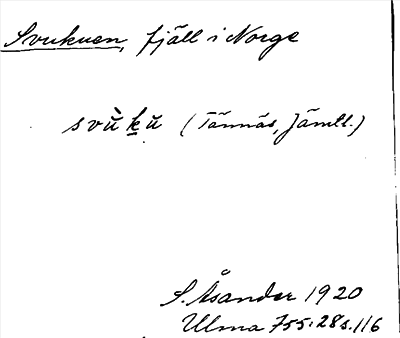 Svukuen, fjäll i Norge
svu̇̀k̲ŭ (Tännäs, Jämtl.)
S. Åsander 1920
Ulma 755:28 s. 116